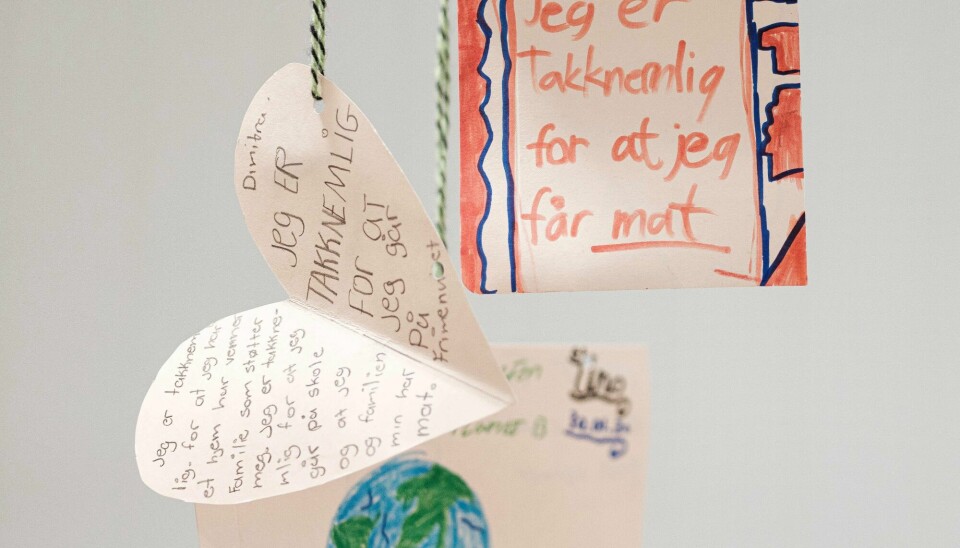 Jeg er
Takknemlig
for at jeg
får mat
Dimitra.
JEG ER
TAKKNEMLIG
FOR AT
jeg går
på
Frimenvet
Jeg er takknem
lig for at jeg har
et hjem har venner
Familie som støtter
meg. Jeg er takkne-
mlig for at jeg
går på skole
og at jeg
og familien
min har
mat.